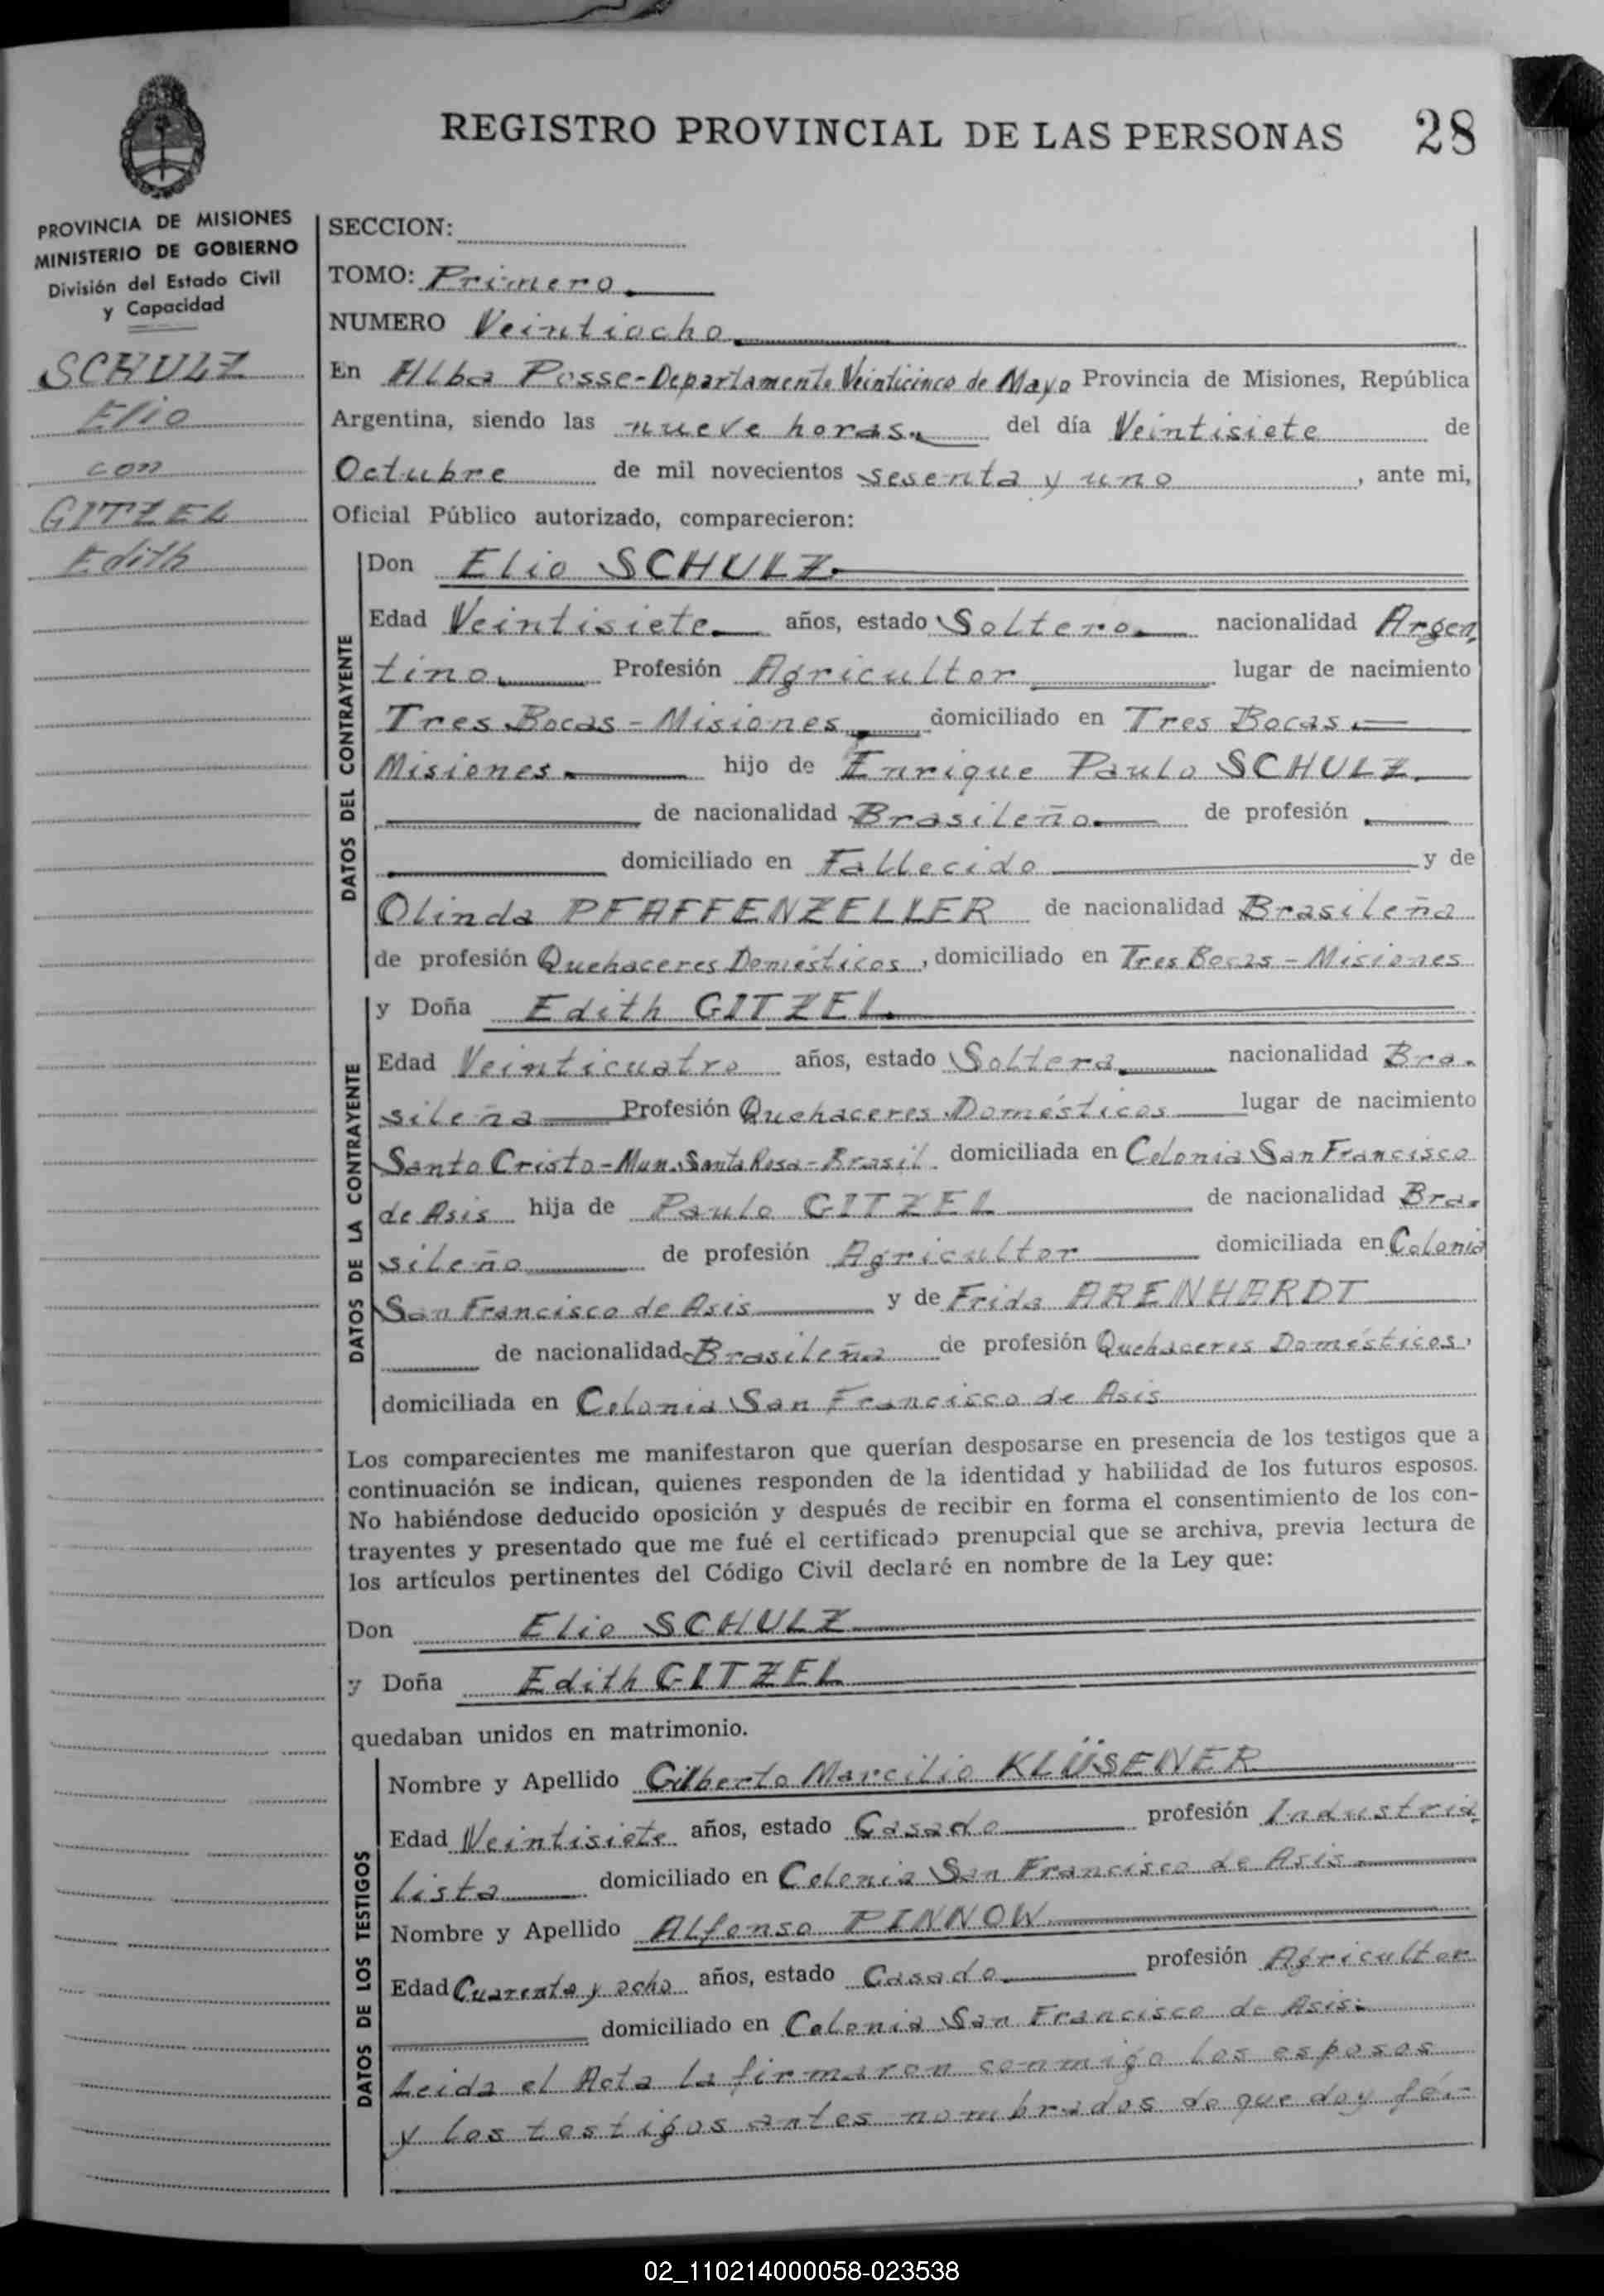 REGISTRO PROVINCIAL DE LAS PERSONAS 28
PROVINCIA DE MISIONES
MINISTERIO DE GOBIERNO
División del Estado Civil
y Capacidad
SCHULZ
Elio
con
GITZEL
Edith
SECCION:
TOMO: Primero
NUMERO Veintiocho
En Alba Posse-Departamento Veinticinco de Mayo Provincia de Misiones, República
Argentina, siendo las nueve horas. del día Veintisiete de
Octubre de mil novecientos sesenta y uno, ante mi,
Oficial Público autorizado, comparecieron:
DATOS DEL CONTRAYENTE
Don Elio SCHULZ.
Edad Veintisiete. años, estado Soltero. nacionalidad Argen
tino. Profesión Agricultor lugar de nacimiento
Tres Bocas - Misiones. domiciliado en Tres Bocas.
Misiones. hijo de Enrique Paulo SCHULZ.
de nacionalidad Brasileño. de profesión
domiciliado en Fallecido y de
Olinda PFAFFENZELLER de nacionalidad Brasileña
de profesión Quehaceres Domésticos, domiciliado en Tres Bocas - Misiones
DATOS DE LA CONTRAYENTE
y Doña Edith GITZEL.
Edad Veinticuatro años, estado Soltera. nacionalidad Bra-
sileña Profesión Quehaceres Domésticos lugar de nacimiento
Santo Cristo-Mun. Santa Rosa-Brasil. domiciliada en Colonia San Francisco
de Asis hija de Paulo GITZEL de nacionalidad Bra-
sileño de profesión Agricultor domiciliada en Colonia
San Francisco de Asis y de Frida ARENHARDT
de nacionalidad Brasileña de profesión Quehaceres Domésticos,
domiciliada en Colonia San Francisco de Asis
Los comparecientes me manifestaron que querían desposarse en presencia de los testigos que a
continuación se indican, quienes responden de la identidad y habilidad de los futuros esposos.
No habiéndose deducido oposición y después de recibir en forma el consentimiento de los con-
trayentes y presentado que me fué el certificado prenupcial que se archiva, previa lectura de
los artículos pertinentes del Código Civil declaré en nombre de la Ley que:
Don Elio SCHULZ
y Doña Edith GITZEL
quedaban unidos en matrimonio.
DATOS DE LOS TESTIGOS
Nombre y Apellido Gilberto Marcilio KLÜSENER
Edad Veintisiete años, estado Casado profesión Industria
lista domiciliado en Colonia San Francisco de Asis.
Nombre y Apellido Alfonso PINNOW
Edad Cuarenta y ocho años, estado Casado. profesión Agricultor
domiciliado en Colonia San Francisco de Asis.
Leida el Acta la firmaron conmigo los esposos
y los testigos antes nombrados de que doy fé.-
02_110214000058-023538